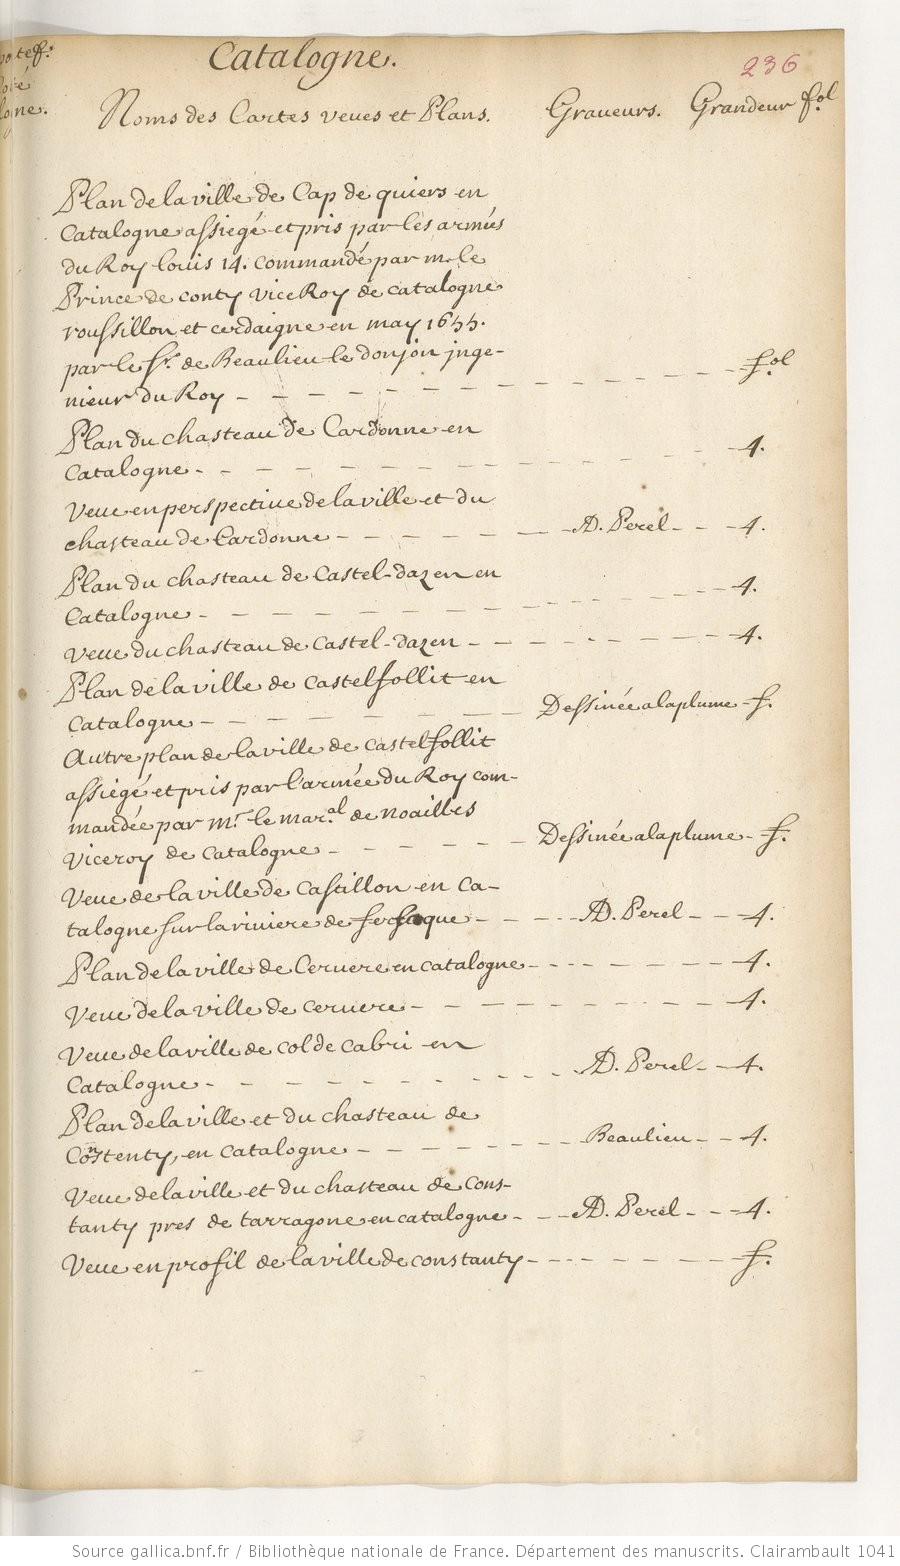 Catalogne.
236
Noms des Cartes veues et Plans. Graveurs. Grandeur fol
Plan de la ville de Cap de quiers en
Catalogne assiegé et pris par les armées
du Roy louis 14. commandé par m. le
Prince de conty viceRoy de catalogne
roussillon et cerdaigne en may 1655.
par le Sr. de Beaulieu le donjon jnge-
nieur du Roy - - - - - - - - - - - fol.
Plan du chasteau de Cardonne en
Catalogne - - - - - - - - - - - 4.
Veue en perspective de la ville et du
chasteau de Cardonne - - - - - - AD. Perel - - - 4.
Plan du chasteau de Castel-dazen en
Catalogne - - - - - - - - - - - 4.
veue du chasteau de Castel-dazen - - - - - - - 4.
Plan de la ville de castelfollit en
Catalogne - - - - - - - - Dessinée a la plume - f.
Autre plan de la ville de castelfollit
assiegé et pris par l'armée du Roy com-
mandée par mr. le mar.al de noailles
viceroy de catalogne - - - - - Dessinée a la plume - f.
Veue de la ville de Castillon en Ca-
talogne sur la riviere de - - - - AD. Perel - - 4.
Plan de la ville de Cervere en catalogne - - - - - - - 4.
Veue de la ville de cervere - - - - - - - - - 4.
Veue de la ville de col de cabri en
Catalogne - - - - - - - - - AD. Perel - - 4.
Plan de la ville et du chasteau de
Constenty, en catalogne - - - - - - - Beaulieu - - 4.
Veue de la ville et du chasteau de Cons-
tanty pres de tarragone en catalogne - - - AD. Perel - - - 4.
Veue en profil de la ville de constanty - - - - - - - f.
Source gallica.bnf.fr / Bibliothèque nationale de France. Département des manuscrits. Clairambault 1041